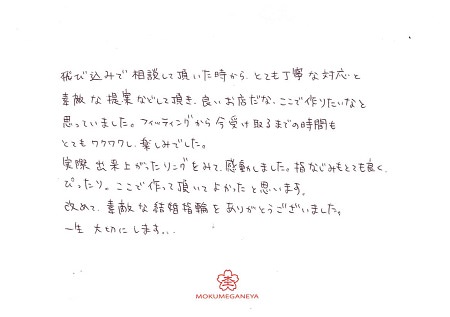 飛び込みで相談して頂いた時から、とても丁寧な対応と
素敵な提案などして頂き、良いお店だな、ここで作りたいなと
思っていました。フィッティングから今受け取るまでの時間も
とてもワクワクし、楽しみでした。
実際出来上がったリングをみて、感動しました。指なじみもとても良く、
ぴったり。ここで作って頂いてよかったと思います。
改めて、素敵な結婚指輪をありがとうございました。
一生大切にします...
MOKUMEGANEYA